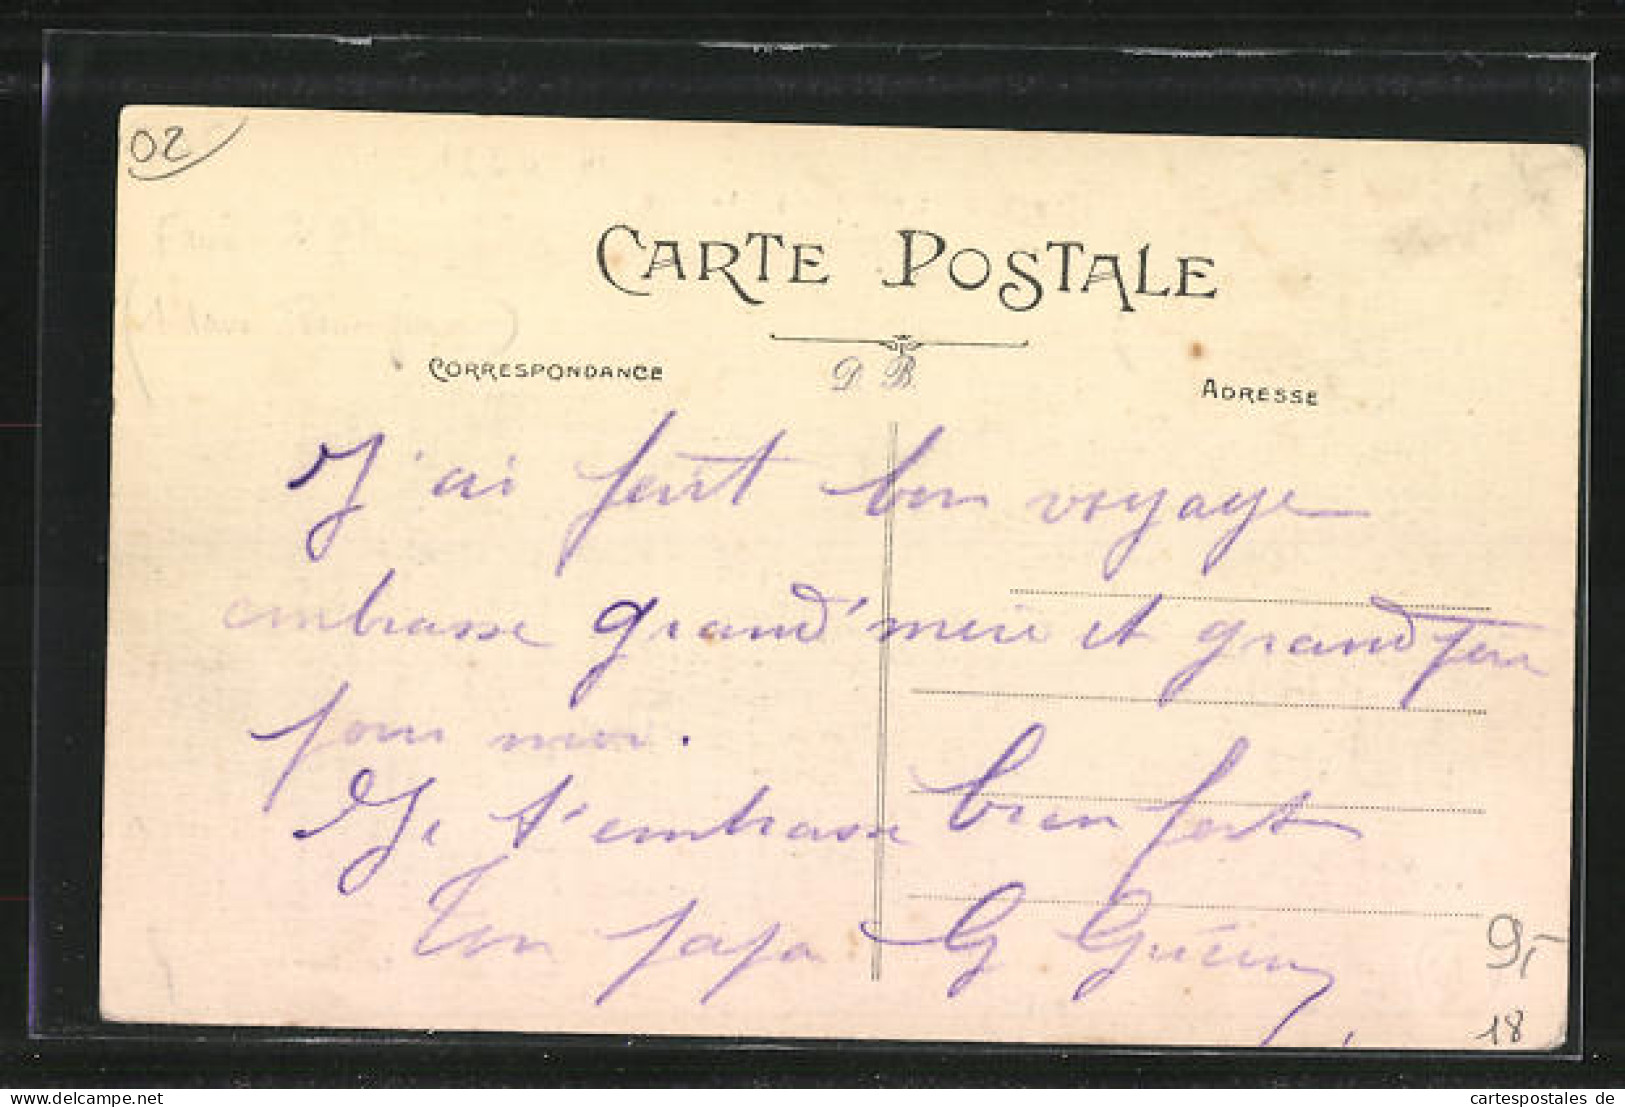 02
CARTE POSTALE
D B
CORRESPONDANCE
ADRESSE
J'ai fait bon voyage
embrasse grand'mère et grand père
pour moi.
Je t'embrasse bien fort
Ton papa G Guérin
9,-
18
cartespostales de